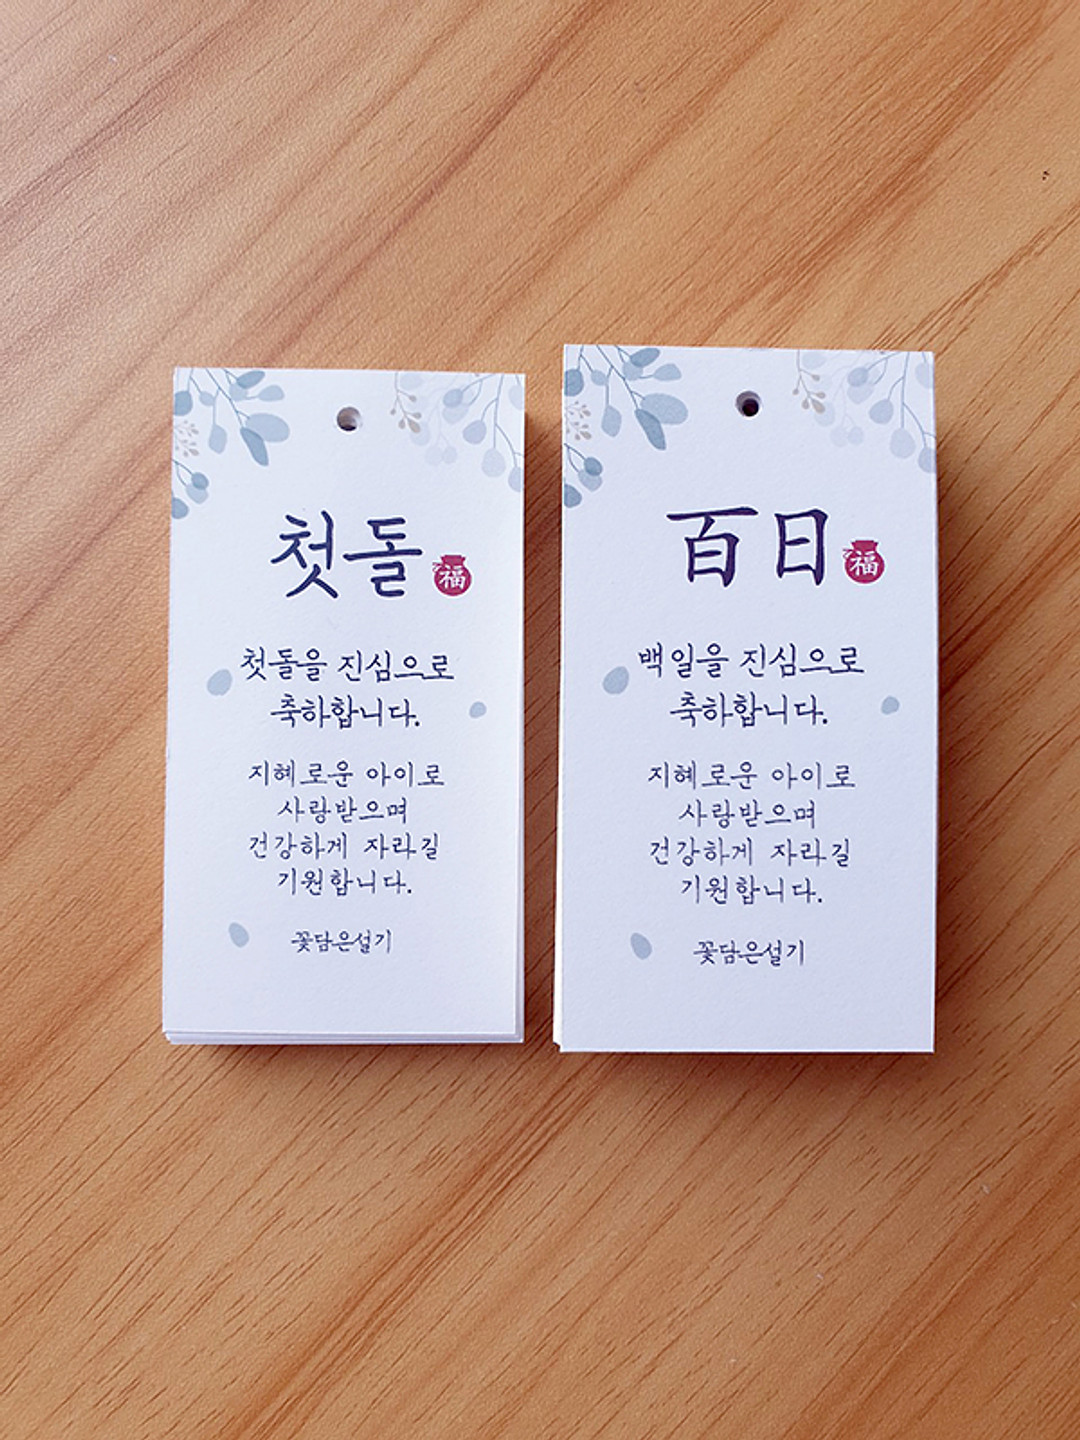 첫돌 福
첫돌을 진심으로
축하합니다.
지혜로운 아이로
사랑받으며
건강하게 자라길
기원합니다.
꽃담은설기
百日 福
백일을 진심으로
축하합니다.
지혜로운 아이로
사랑받으며
건강하게 자라길
기원합니다.
꽃담은설기